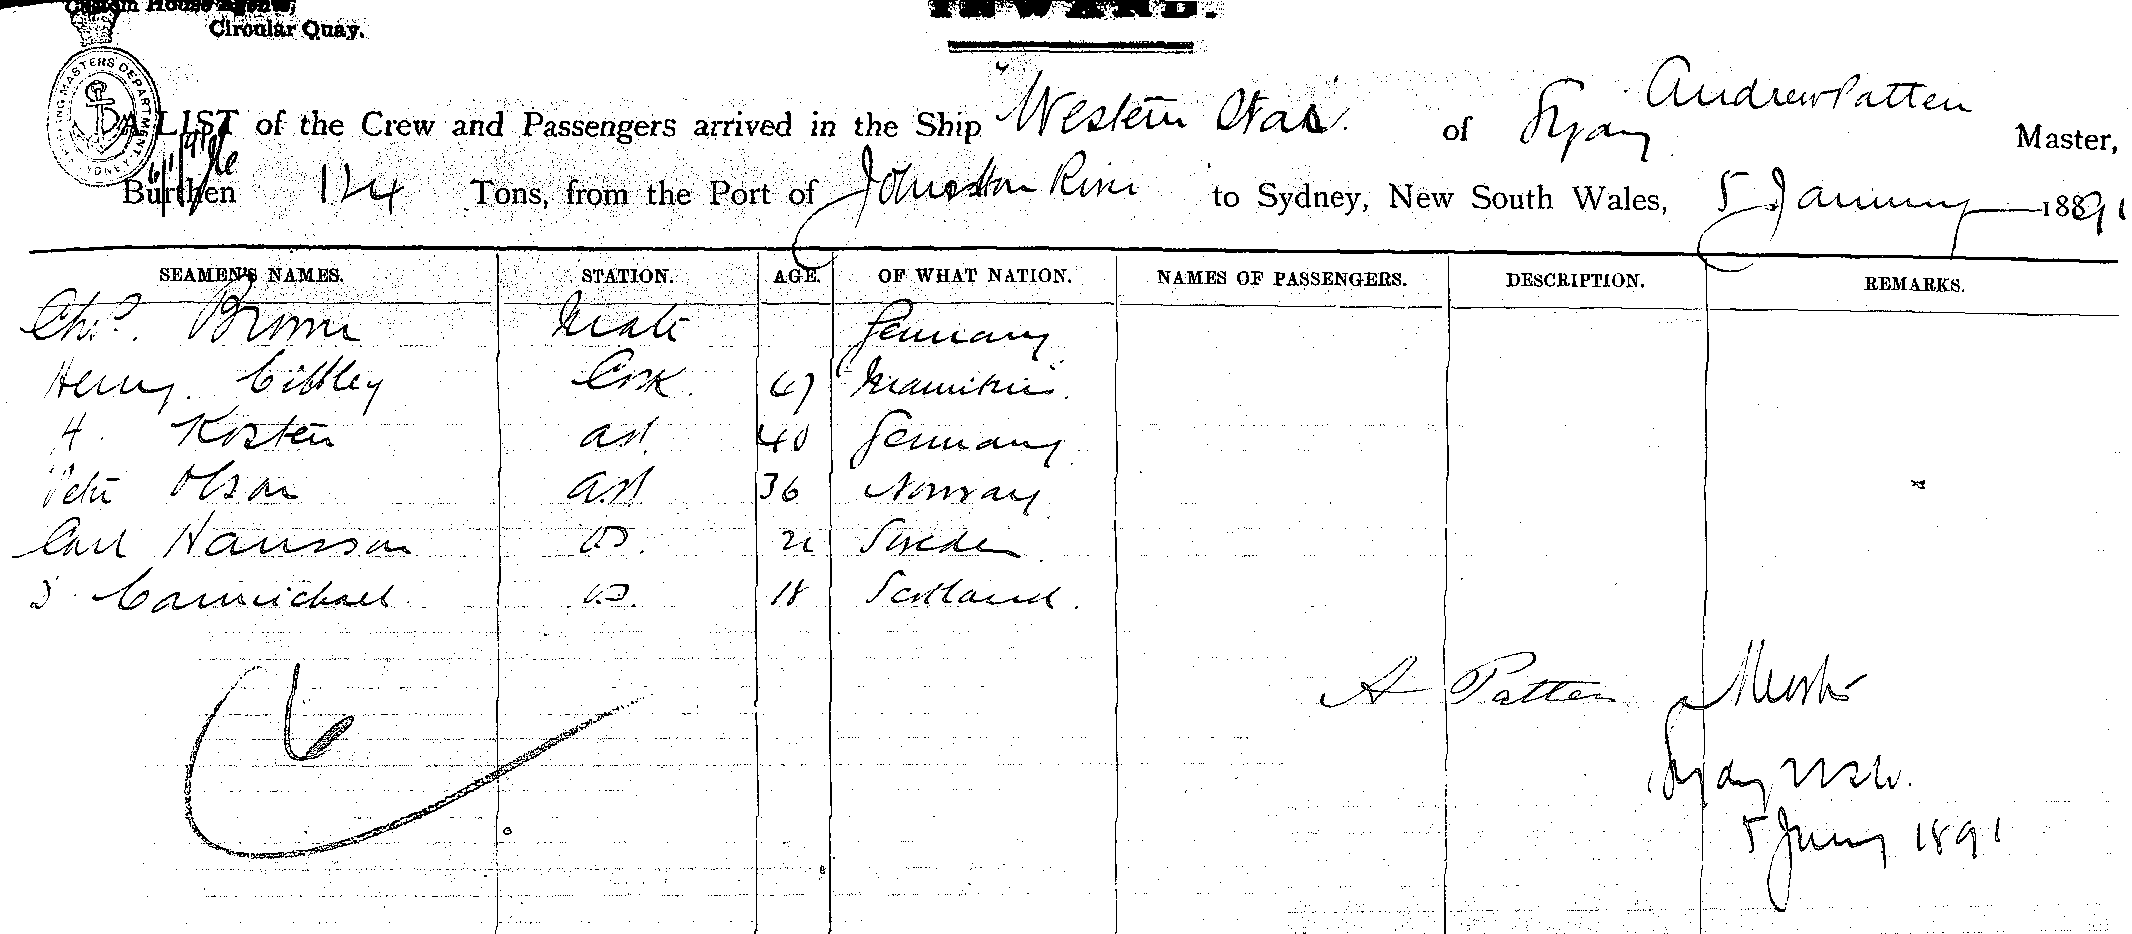 Custom House Agents,
Circular Quay.
INWARD.
SHIPPING MASTERS DEPARTMENT SYDNEY
A LIST of the Crew and Passengers arrived in the Ship "Western Star" of Sydney Andrew Patten Master,
Burthen 124 Tons, from the Port of Johnston River to Sydney, New South Wales, 5 January 1891
SEAMEN'S NAMES. STATION. AGE. OF WHAT NATION. NAMES OF PASSENGERS. DESCRIPTION. REMARKS.
Chas. Brown Mate Germany
Henry Cook 47 Mauritius.
H. Kosten AS. 40 Germany
Peter Olson AS 36 Norway
Carl Hansson OS. Sweden
Carmichael OS. 18 Scotland.
6
A Patten Master
Sydney NSW.
5 Jany 1891